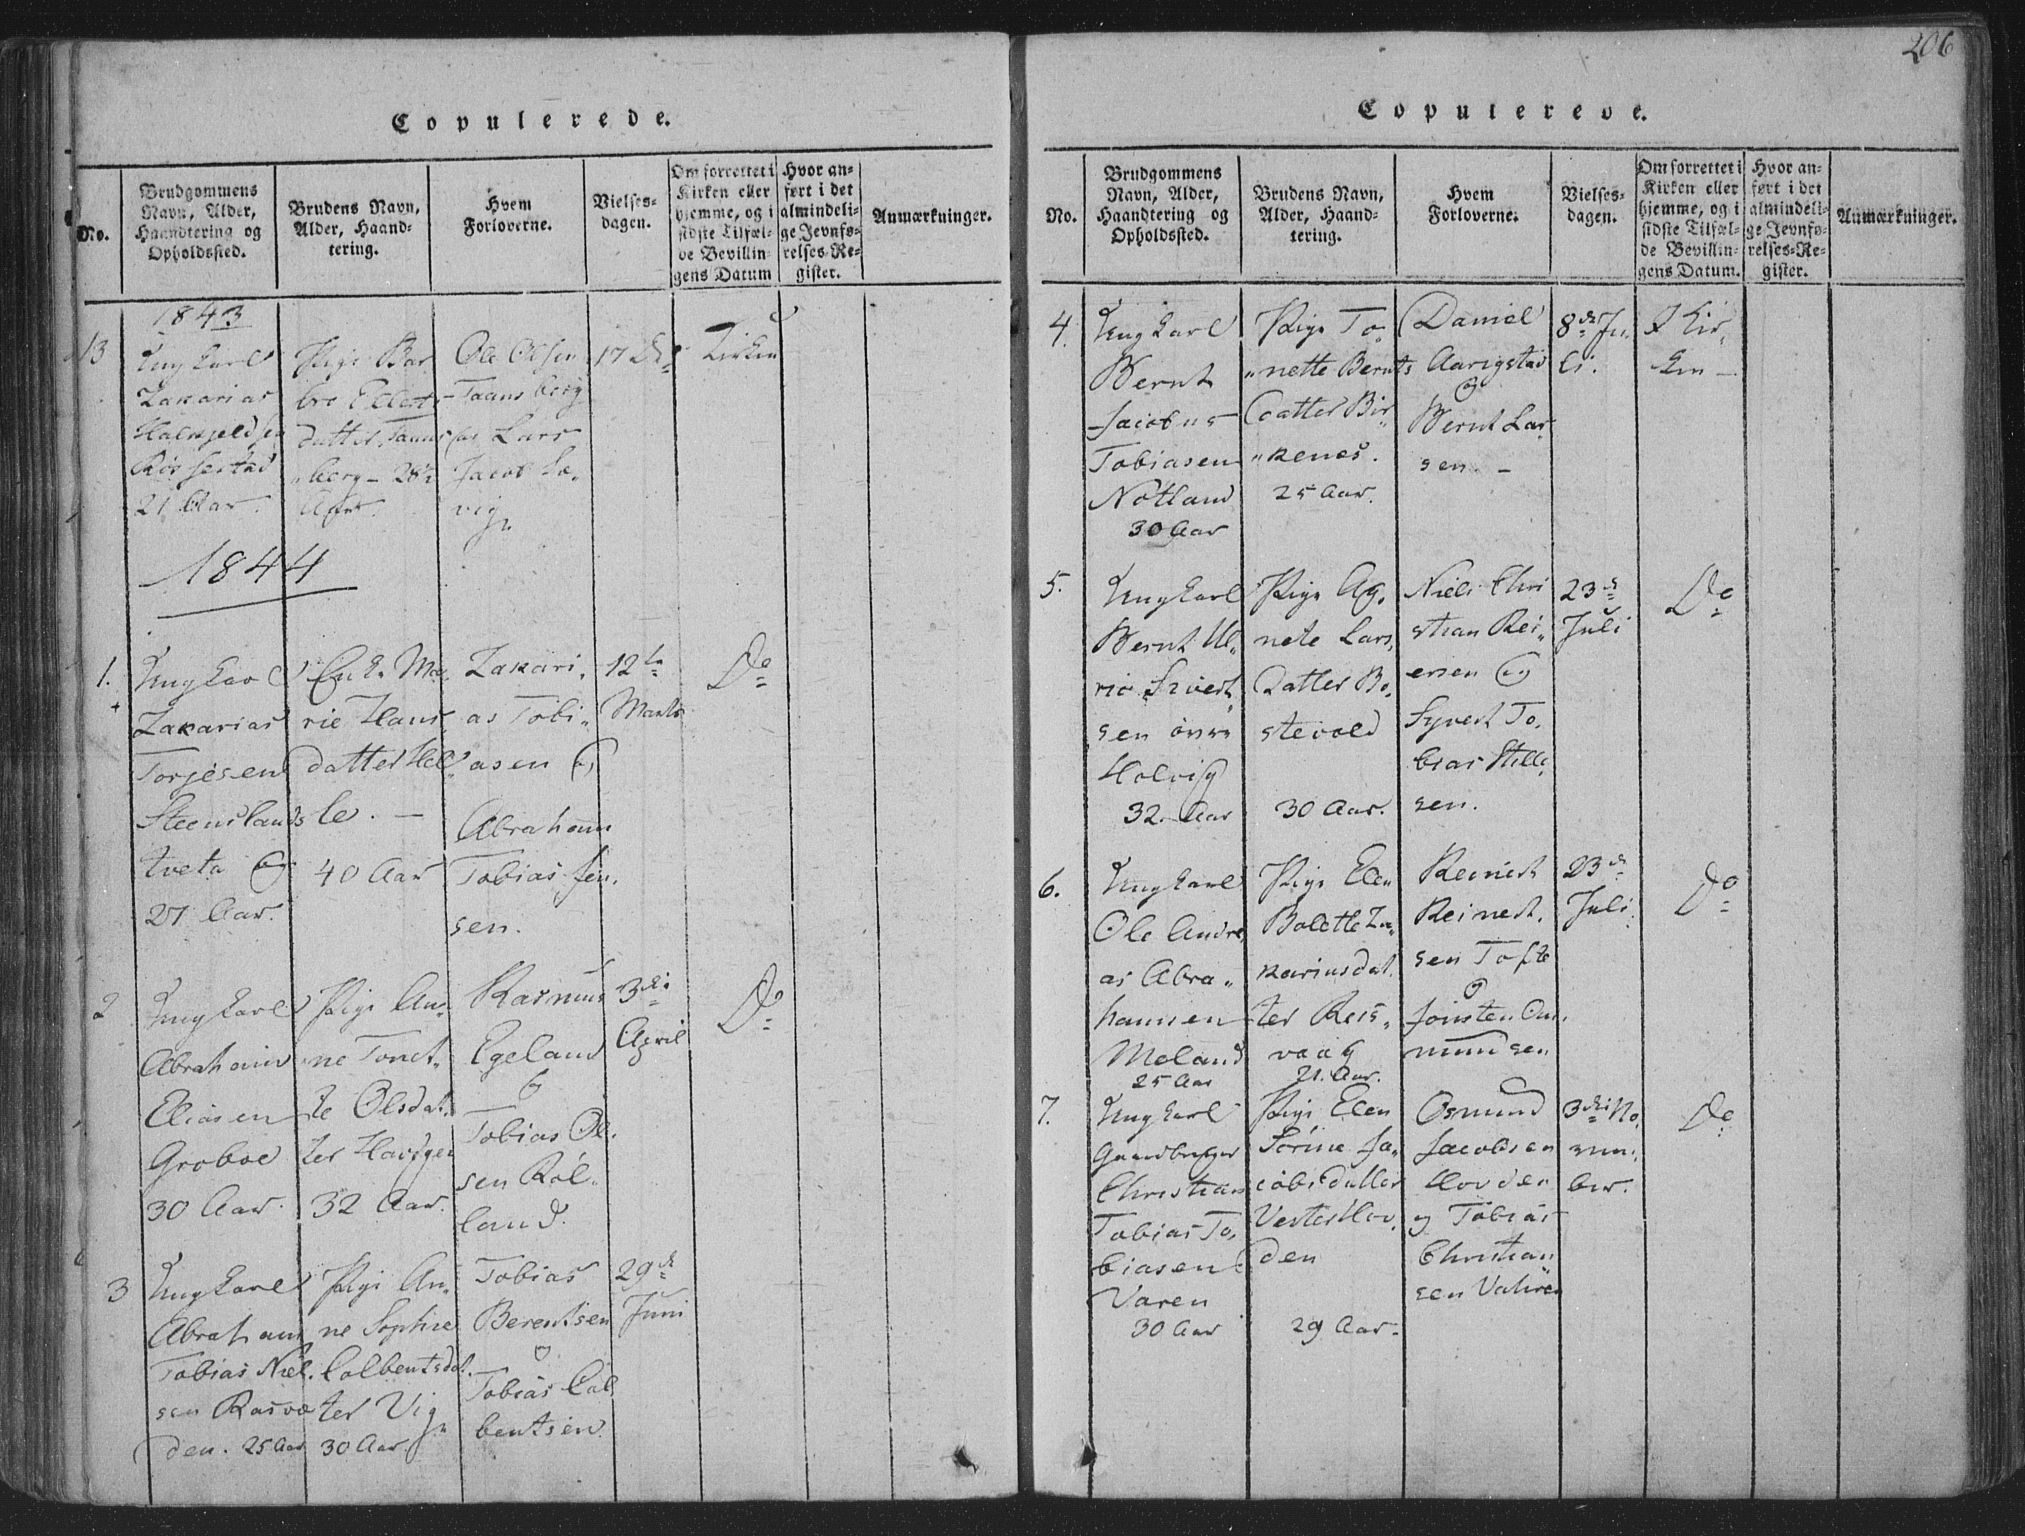 206
Copulerede.
No.
Brudgommens
Navn, Alder,
Haandtering og
Opholdssted.
Brudens Navn,
Alder, Haand=
tering.
Hvem
Forloverne.
Vielses=
dagen.
Om forrettet i
Kirken eller
hjemme, og i
sidste Tilfæl=
de Bevillin=
gens Datum
Hvor an=
ført i det
almindeli=
ge Jevnfø=
relses-Re=
gister.
Anmærkninger.
1843
13
Ungkarl
Zakarias
21 Aar.
Pige Bar
bro
datter
berg – 28½
Aar.
Ole Olsen
Taansberg
Lars
Jacob
vig
17
Kirken
1844
1.
Ungkarl
Zakarias
Torjesen
Steenslands
tveta
27 Aar.
Enke Ma,
rie Hans,
datter Hel,,
le. —
40 Aar
Zakari,
as Tobi,,
asen
Abraham
Tobias Jen,
sen.
12te
Marts
Do
2
Ungkarl
Abraham
Eliasen
Groboe
30 Aar.
Pige An,
ne Tonet,
te Olsdat,
ter
32 Aar.
Rasmus
Egeland
Tobias Ol,
sen Röl,
land.
3die
April
Do
3
Ungkarl
Abraham
Tobias Niel,
sen Rasvo
den. 25 Aar
Pige An,
ne Sophie
Colbentsdat,
ter Vig
30 Aar
Tobias
Berentsen
Tobias Col
bentsen
29de
Juni
Copulerede.
No.
Brudgommens
Navn, Alder,
Haandtering og
Opholdssted.
Brudens Navn,
Alder, Haand=
tering.
Hvem
Forloverne.
Vielses=
dagen.
Om forrettet i
Kirken eller
hjemme, og i
sidste Tilfæl=
de Bevillin=
gens Datum.
Hvor an=
ført i det
almindeli=
ge Jevnfø=
relses-Re=
gister.
Anmærkninger.
4.
Ungkarl
Bernt
Jacobus
Tobiasen
Notland
30 Aar
Pige To,
,,nette Bernts
Datter Bir,
,,kenes.
25 Aar.
Daniel
Aarigstad
Bernt Lar
sen. –
8de Ju,
li.
I Kir,
ken –
5.
Ungkarl
Bernt Ul,
ric Sivert,
sen övre
Holvig
32. Aar
Pige Ag,
nete Lars,
Datter Bo,
stevold
30 Aar.
Niels Chri
stian Rei,
ersen
Syvert To,
bias
sen.
23de
Juli
Do
6.
Ungkarl
Ole Andre,
as Abra,
hamsen
Meland
25 Aar
Pige Elen
Bolette Za,
kariasdat,
ter Reis,
vaag
21. Aar.
Reinert
Reinert,
sen Tofte
Jonsten Om,
mundsen
23de
Juli.
Do
7.
Ungkarl
Christian
Tobias To,
biasen
Varen
30 Aar
Pige Elen
Sörine Ja,
cobsdatter
Vester Hov,
den
29 Aar.
Osmund
Jacobsen
Hovden
og Tobias
Christian
sen
3die No,
vem,
ber.
Do